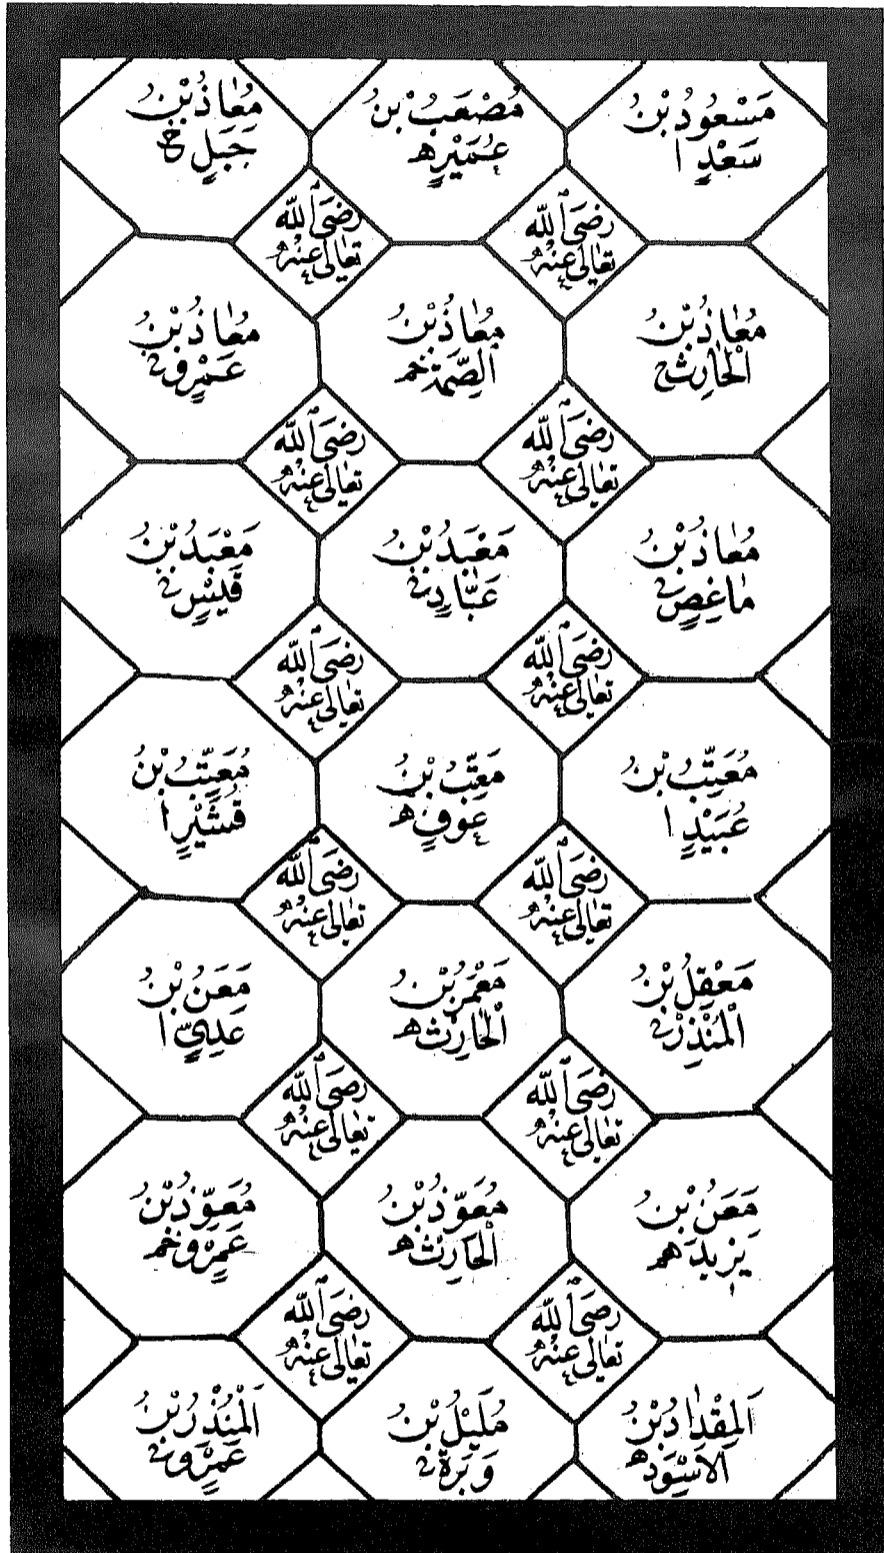 مَسْعُودُ بْنُ
سَعْدٍ ا
مُصْعَبُ بْنُ
عُمَيْرٍ ه
مُعَاذُ بْنُ
جَبَلٍ خ
رَضِيَ اللّٰه
تَعَالٰى عَنْهُ
رَضِيَ اللّٰه
تَعَالٰى عَنْهُ
مُعَاذُ بْنُ
الْحَارِث خ
مُعَاذُ بْنُ
الصِّمَّة خم
مُعَاذُ بْنُ
عَمْرٍو
رَضِيَ اللّٰه
تَعَالٰى عَنْهُ
رَضِيَ اللّٰه
تَعَالٰى عَنْهُ
مُعَاذُ بْنُ
مَاعِصٍ
مَعْبَدُ بْنُ
عَبَّادٍ
مَعْبَدُ بْنُ
قَيْسٍ
رَضِيَ اللّٰه
تَعَالٰى عَنْهُ
رَضِيَ اللّٰه
تَعَالٰى عَنْهُ
مُعَتِّبُ بْنُ
عُبَيْدٍ ا
مُعَتِّبُ بْنُ
عَوفٍ ه
مُعَتِّبُ بْنُ
قُشَيْرٍ ا
رَضِيَ اللّٰه
تَعَالٰى عَنْهُ
رَضِيَ اللّٰه
تَعَالٰى عَنْهُ
مَعْقِلُ بْنُ
الْمُنْذِرِ
مَعْمَرُ بْنُ
الْحَارِث ه
مَعَنُ بْنُ
عَدِيٍّ ا
رَضِيَ اللّٰه
تَعَالٰى عَنْهُ
رَضِيَ اللّٰه
تَعَالٰى عَنْهُ
مَعَنُ بْنُ
يَزِيدَ هم
مُعَوِّذُ بْنُ
الْحَارِث ه
مُعَوِّذُ بْنُ
عَمْرٍو خم
رَضِيَ اللّٰه
تَعَالٰى عَنْهُ
رَضِيَ اللّٰه
تَعَالٰى عَنْهُ
اَلْمِقْدَادُ بْنُ
الاَسْوَدِ ه
مُلَيْلُ بْنُ
وَبَرَةَ
اَلْمُنْذِرُ بْنُ
عَمْرٍو